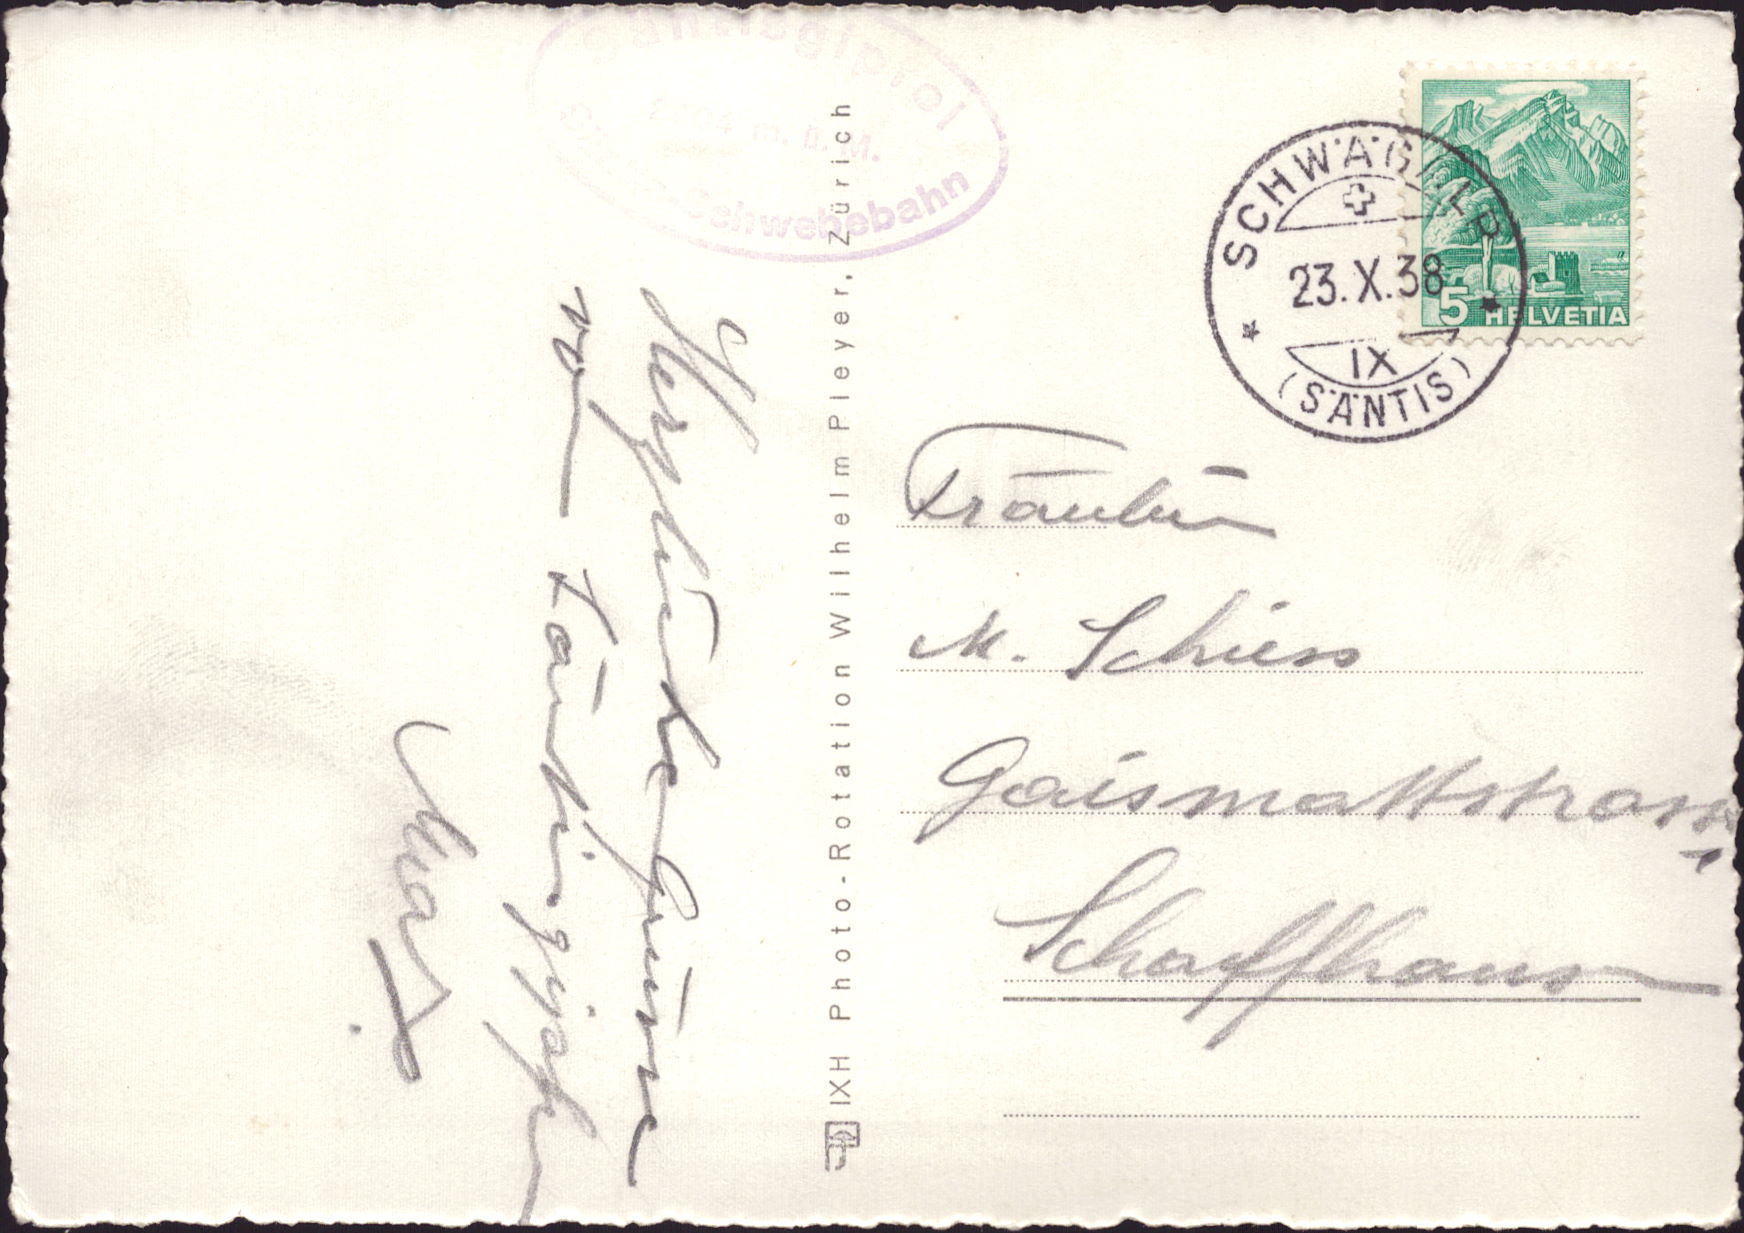 Säntisgipfel
2504 m. ü. M.
Säntis-Schwebebahn
Herzliche Grüsse
vom Säntisgipfel
Max.
IXH Photo-Rotation Wilhelm Pleyer, Zürich
SCHWÄGALP
23.X.38
IX
(SÄNTIS)
5 HELVETIA
Fräulein
M. Schiess
Gaismattstrasse
Schaffhausen